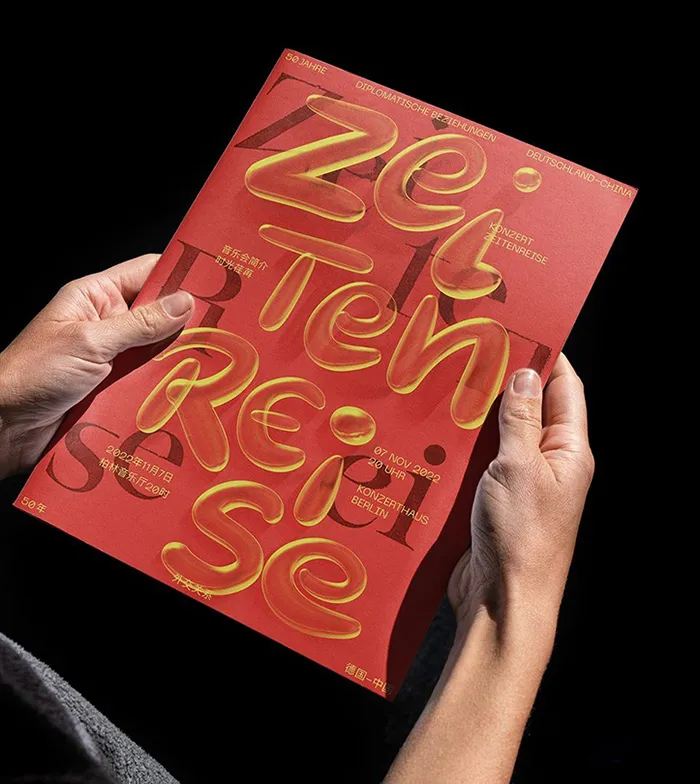 50 JAHRE
DIPLOMATISCHE BEZIEHUNGEN
DEUTSCHLAND–CHINA
Zei
Ten
Rei
Se
Zei
te
R
se
ei
KONZERT
ZEITENREISE
音乐会简介
时光荏苒
07 NOV 2022
20 UHR
KONZERTHAUS
BERLIN
2022年11月7日
柏林音乐厅20时
50年
外交关系
德国–中国